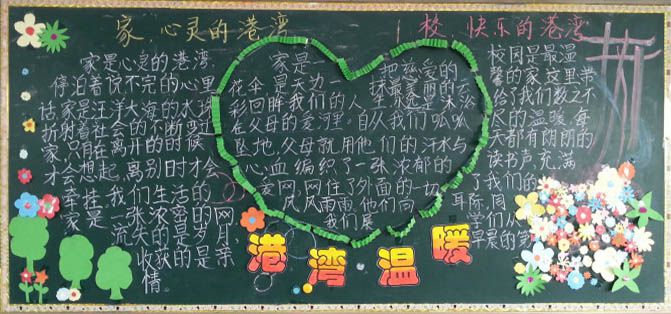 家、心灵的港湾
校、快乐的港湾
家是心灵的港湾,
停泊着说不完的心里
话,家是汪洋大海的水珠
折射着社会的不断变迁
家,只有在离开的时候
才会想起,离别时才会
牵挂,我们生活的
家是一张浓密的网
流失的是岁月,
收获的是亲
情。
家是一把敞爱的
花伞,是天边一抹最美丽的云
彩回眸我们的人生
在父母的爱河里,自从我们呱呱
坠地,父母就用他们的汗水与
心血编织了一张浓郁的
爱网,网住了外面的一切
风风雨雨,他们向
我们展
校园是最温
馨的家,这里带
给了我们数之不
尽的温暖,每
天都有朗朗的
读书声,充满
了我们的
耳际,同
学们从
早晨的第
港湾温暖